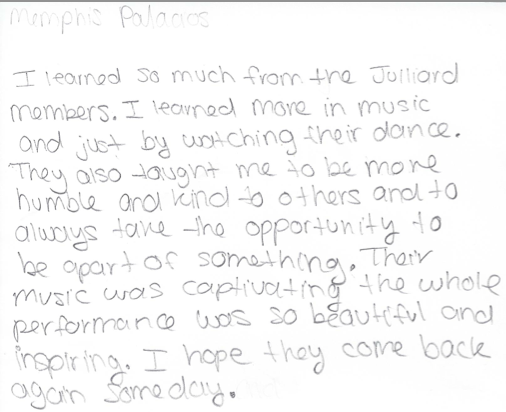 Memphis Palacios
I learned so much from the Julliard
members. I learned more in music
and just by watching their dance.
They also taught me to be more
humble and kind to others and to
always take the opportunity to
be apart of something. Their
music was captivating the whole
performance was so beautiful and
inspiring. I hope they come back
again someday.